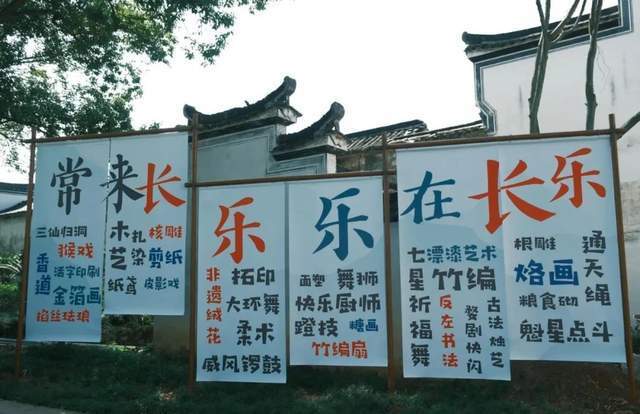 常来长乐乐在长乐
三仙归洞
猴戏
香道
活字印刷
金箔画
掐丝珐琅
木艺
扎染
核雕
剪纸
纸鸢
皮影戏
非遗绒花
拓印
大环舞
柔术
威风锣鼓
面塑
舞狮
快乐厨师
蹬技
糖画
竹编扇
七星祈福舞
漂漆艺术
竹编
反左书法
婺剧快闪
古法烛艺
根雕
烙画
粮食砌
魁星点斗
通天绳